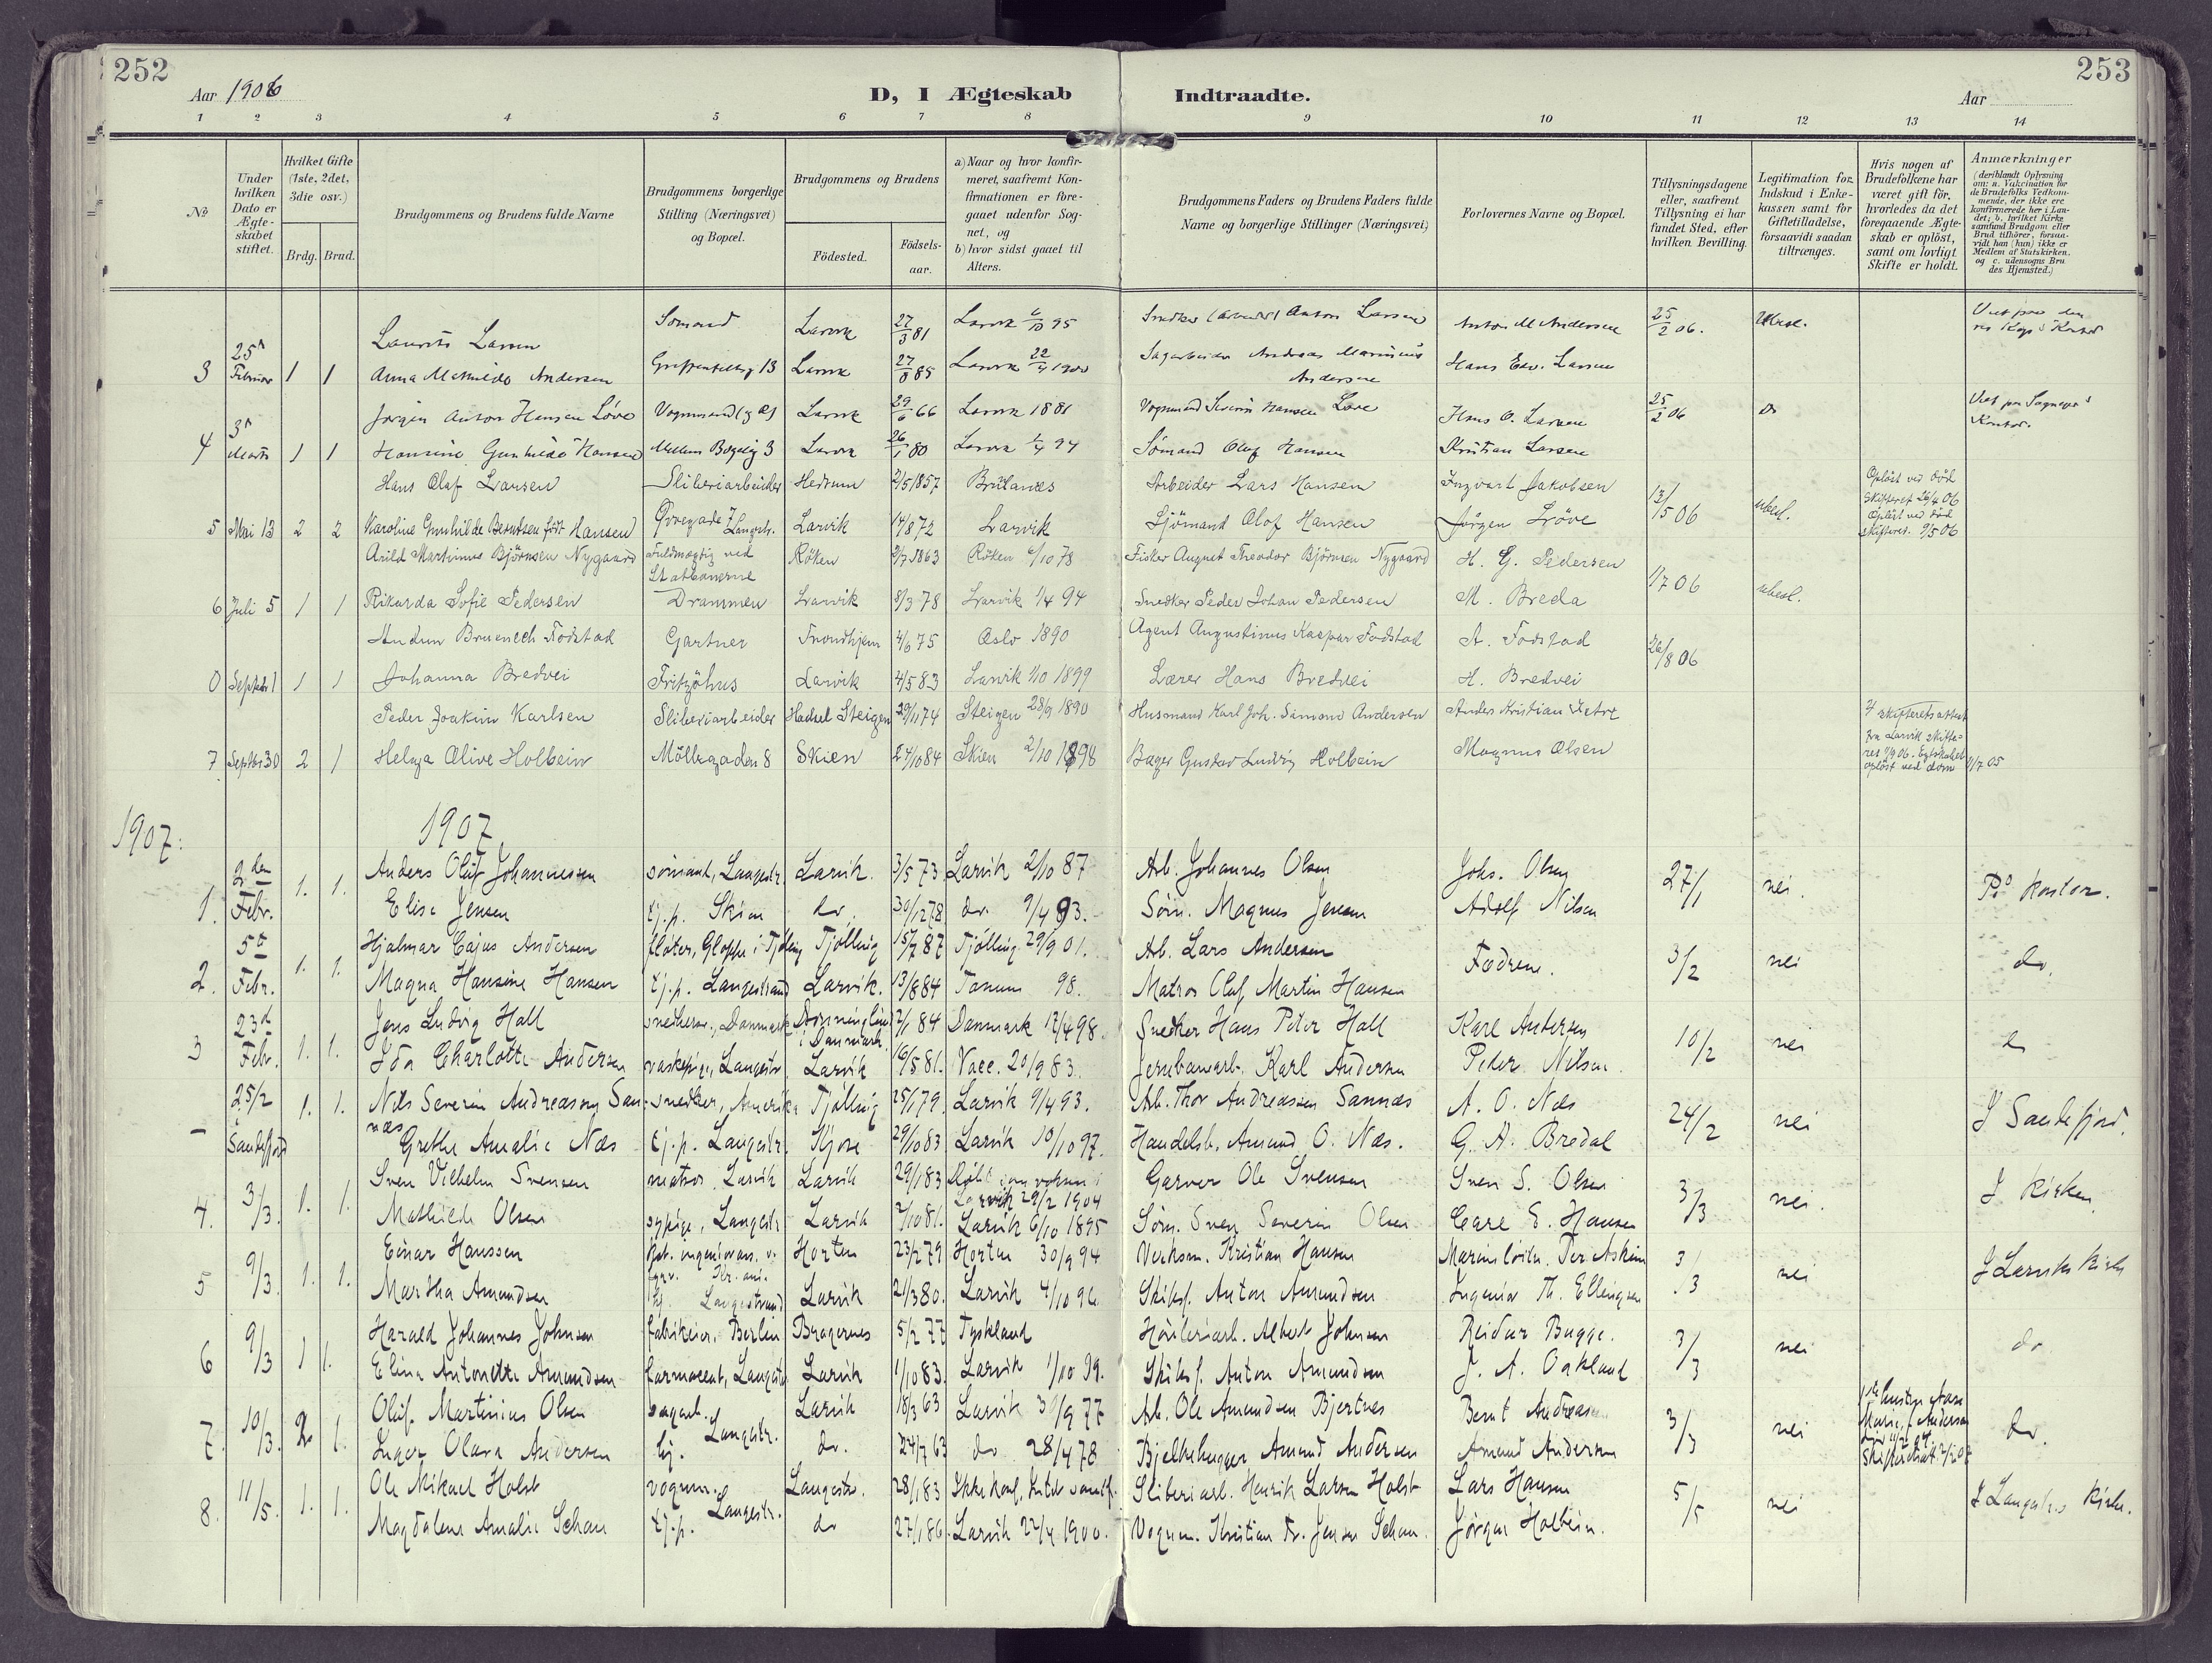 252
253
Aar 1906
D, I Ægteskab Indtraadte.
Aar
1 2 3 4 5 6 7 8 9 10 11 12 13 14
No
Under hvilken Dato er Ægteskabet stiftet.
Hvilket Gifte (1ste, 2det, 3die osv.)
Brdg. Brud.
Brudgommens og Brudens fulde Navne
Brudgommens borgerlige Stilling (Næringsvei) og Bopæl.
Brudgommens og Brudens
Födested.
Födsels-aar.
a) Naar og hvor konfirmeret, saafremt Konfirmationen er foregaaet udenfor Sognet, og
b) hvor sidst gaaet til Alters.
Brudgommens Faders og Brudens Faders fulde Navne og borgerlige Stillinger (Næringsvei)
Forlovernes Navne og Bopæl.
Tillysningsdagene eller, saafremt Tillysning ei har fundet Sted, efter hvilken Bevilling.
Legitimation for Indskud i Enkekassen samt for Giftetilladelse, forsaavidt saadan tiltrænges.
Hvis nogen af Brudefolkene har været gift för, hvorledes da det foregaaende Ægteskab er oplöst, samt om lovligt Skifte er holdt.
Anmærkninger (deriblandt Oplysning om: a. Vakcination for de Brudefolks Vedkommende, der ikke ere konfirmerede her i Landet; b. hvilket Kirkesamfund Brudgom eller Brud tilhörer, forsaavidt han (hun) ikke er Medlem af Statskirken, og c. udensogns Brudes Hjemsted.)
Laurits Larsen Sømand Larvik 27/3 81 Larvik 95 Anton Larsen Anton M Andersen 25/2 06. Ubesl.
3 25n Februar 1 1 Anna Mathilde Andersen 13 Larvik 27/8 85 Larvik 22/4 1900 Sagarbeider Andreas Marinius Andersen Hans Edv. Larsen
Jørgen Anton Hansen Løve Vognmand Larvik 29/6 66 Larvik 1881 Vognmand Severin Hansen Løve Hans O. Larsen 25/2 06 do
4 3n Marts 1 1 Hansine Gunhilda Hansen 3 Larvik 26/1 80 Larvik 94 Sømand Olaf Hansen Kristian Larsen
Hans Olaf Larsen Sliberiarbeider Hedrum 2/5 1857 Brulanes Arbeider Lars Hansen Ingvart Jakobsen 13/5 06 ubesl. Opløst ved død Skifteret 26/4 06
5 Mai 13 2 2 Karoline Gunhilde Berntsen født Hansen Øvregade 7 Langestr. Larvik 14/8 72 Larvik Sjømand Olof Hansen Jørgen Løve Opløst ved død skifteret. 9/5 06
Arild Martinus Björnsen Nygaard Fuldmægtig ved Statbanerne Röken 2/7 1863 Röken 6/10 78 Fisker August Theodor Björnsen Nygaard H. G. Pedersen 1/7 06 ubesl.
6 Juli 5 1 1 Rikarda Sofie Pedersen Drammen Larvik 8/3 78 Larvik 1/4 94 Snedker Peder Johan Pedersen M. Breda
Bruenech Fodstad Gartner Trondhjem 4/6 75 Oslo 1890 Agent Augustinus Kaspar Fodstad A. Fodstad 26/8 06
0 Septbr 1 1 1 Johanna Bredvei Fritzöhus Larvik 4/5 83 Larvik 1/10 1899 Lærer Hans Bredvei H. Bredvei
Peder Joakim Karlsen Sliberiarbeider Hadsel Steigen 29/11 74 Steigen 28/9 1890 Husmand Karl Joh. Simon Andersen Anders Kristian
7 Septbr 30 2 1 Helga Olive Holbein Möllegaden 8 Skien 24/10 84 Skien 2/10 1898 Bager Gustav Ludvig Holbein Magnus Olsen fra Larvik Skifteret 06. Egteskabet opløst ved dom 4/7 05
1907: 1907
Anders Oluf Johannesen sömand, Langestr. Larvik. 3/5 73 Larvik 2/10 87 Arb. Johannes Olsen Johs. Olsen 27/1 nei. Ps kontor.
1. 2den Febr. 1. 1. Elise Jensen tj.p. Skien do. 30/12 78 do. 9/4 93. Söm. Magnus Jensen Adolf Nilsen
Hjalmar Cajus Andersen fløter, Gloppe i Tjölling Tjölling 15/7 87 Tjölling 29/9 01. Arb. Lars Andersen Fædrene. 3/2 nei do.
2. 5te Febr. 1. 1. Magna Hansine Hansen tj.p. Langestrand Larvik. 13/8 84 Tanum 98. Matros Oluf Martin Hansen
Jens Ludvig Hall snedker., Danmark i Danmark. 12/1 84 Danmark 17/4 98. Snedker Hans Peter Hall Karl Andersen 10/2 nei
3 23d Febr. 1. 1. Ida Charlotte Andersen vaskepige, Langestr. Larvik 16/5 81. Vacc. 20/9 83. Jernbanearb. Karl Andersen Peder Nilsen.
Nils Severin Andreassen Sannæs snedker, Amerika Tjölling 25/1 79. Larvik 9/4 93. Arb. Thor Andreassen Sannæs A. O. Næs 24/2 nei I Sandefjord.
– 25/2 Sandefjord 1. 1. Grethe Amalie Næs tj.p. Langestr. Kjose 29/10 83 Larvik 10/10 97. Handelsb. Amund O. Næs. G. A. Bredal
Sven Vilhelm Svensen matros, Larvik Larvik 29/1 83 Døbt som voksen i Larvik 29/2 1904 Garver Ole Svensen Sven S. Olsen 3/3 nei. I kirken.
4. 3/3. 1. 1. Mathilde Olsen sypige, Langestr. Larvik 2/10 81. Larvik 6/10 1895 Söm. Sven Severin Olsen Carl S. Hansen
Einar Hanssen Horten 23/2 79 Horten 30/9 94 Verksm. Kristian Hansen Marinelöitn. Per Askim 3/3 nei I Larviks kirke
5 9/3. 1. 1. Martha Amundsen Langestrand Larvik 21/3 80. Larvik 4/10 96. Skibsf. Anton Amundsen Ingeniör Th. Ellingsen
Harald Johannes Johnsen fabrikeier, Berlin Bragernes 5/2 77 Tyskland Hövleriarb. Albert Johnsen Reidar Bugge. 3/3 nei do
6 9/3 1 1. Elina Antonette Amundsen farmaceut, Langestr. Larvik 1/10 83. Larvik 1/10 99. Skibsf. Anton Amundsen J. A. Oakland
Oluf Martinius Olsen sagarb. Langestr. Larvik 18/3 63 Larvik 30/9 77 Arb. Ole Amundsen Bjertnæs Bernt Andreas 3/3 nei do.
7. 10/3. 2 1. Inger Olava Andersen tj. do. 24/7 63 do 28/4 78 Bjelkehugger Amund Andersen Amund Andersen
Ole Mikael Holst vognm. Langestr. Langestr. 28/1 83 Ikke konf. Sliberiarb. Henrik Larsen Holst Lars Hansen 5/5 nei I Langestrs kirke.
8. 11/5. 1. 1. Magdalene Amalie Schau tj.p. do 27/1 86. Larvik 22/4 1900. Vognm. Kristian Fr. Jensen Schau. Jörgen Holbein.